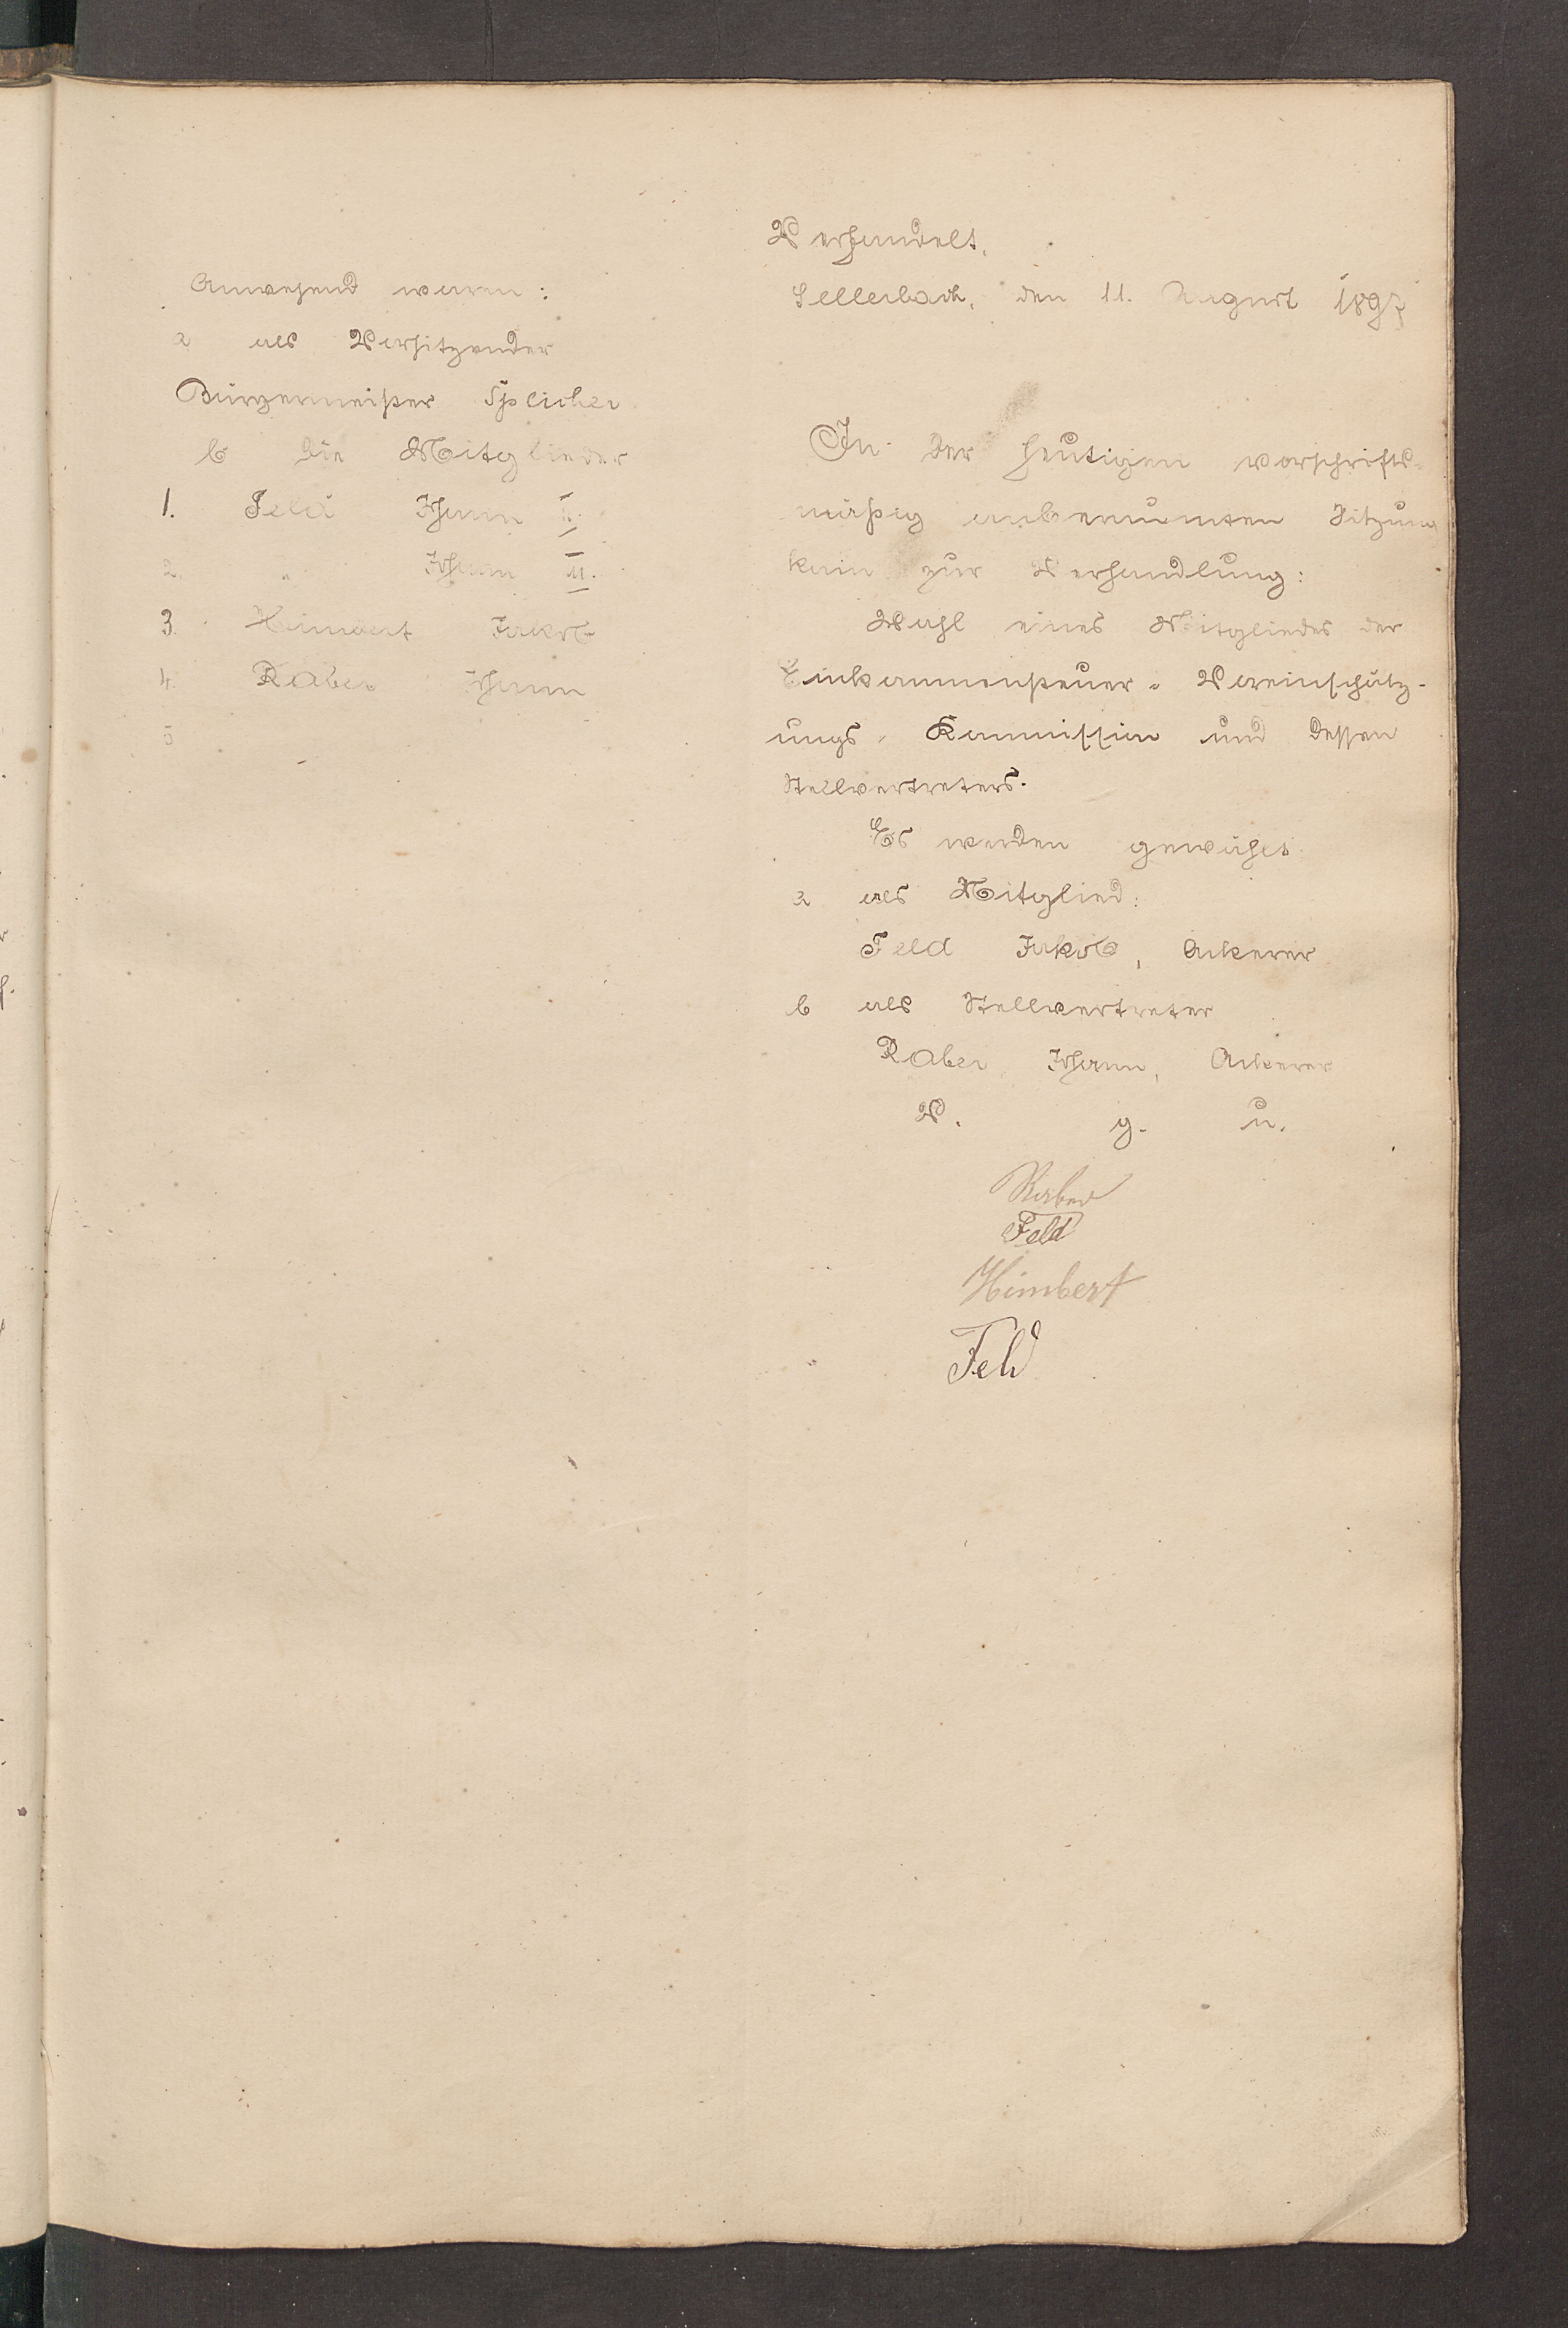 Anwesend waren:
a als Vorsitzender
Bürgermeister Speicher
b die Mitglieder
1. Feld Johann II.
2. " Johann III.
3. Himbert Jakob
4. Raber Johann
5
Verhandelt,
Sellerbach, den 11. August 1897
In der heutigen vorschrifts-
mäßig anberaumten Sitzung
kam zur Verhandlung:
Wahl eines Mitgliedes der
Einkommensteuer-Voreinschätz-
ungs-Kommission und dessen
Stellvertreters.
Es werden gewählt
a als Mitglied:
Feld Jakob, Ackerer
b als Stellvertreter
Raber Johann, Ackerer
V. g. u.
Raber
Feld
Himbert
Feld